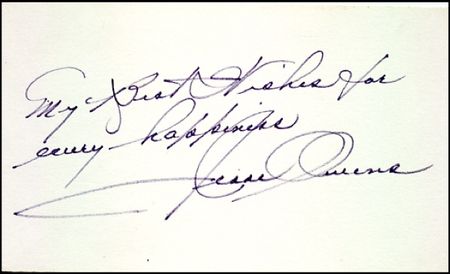 My Best Wishes for
every happiness
Jesse Owens